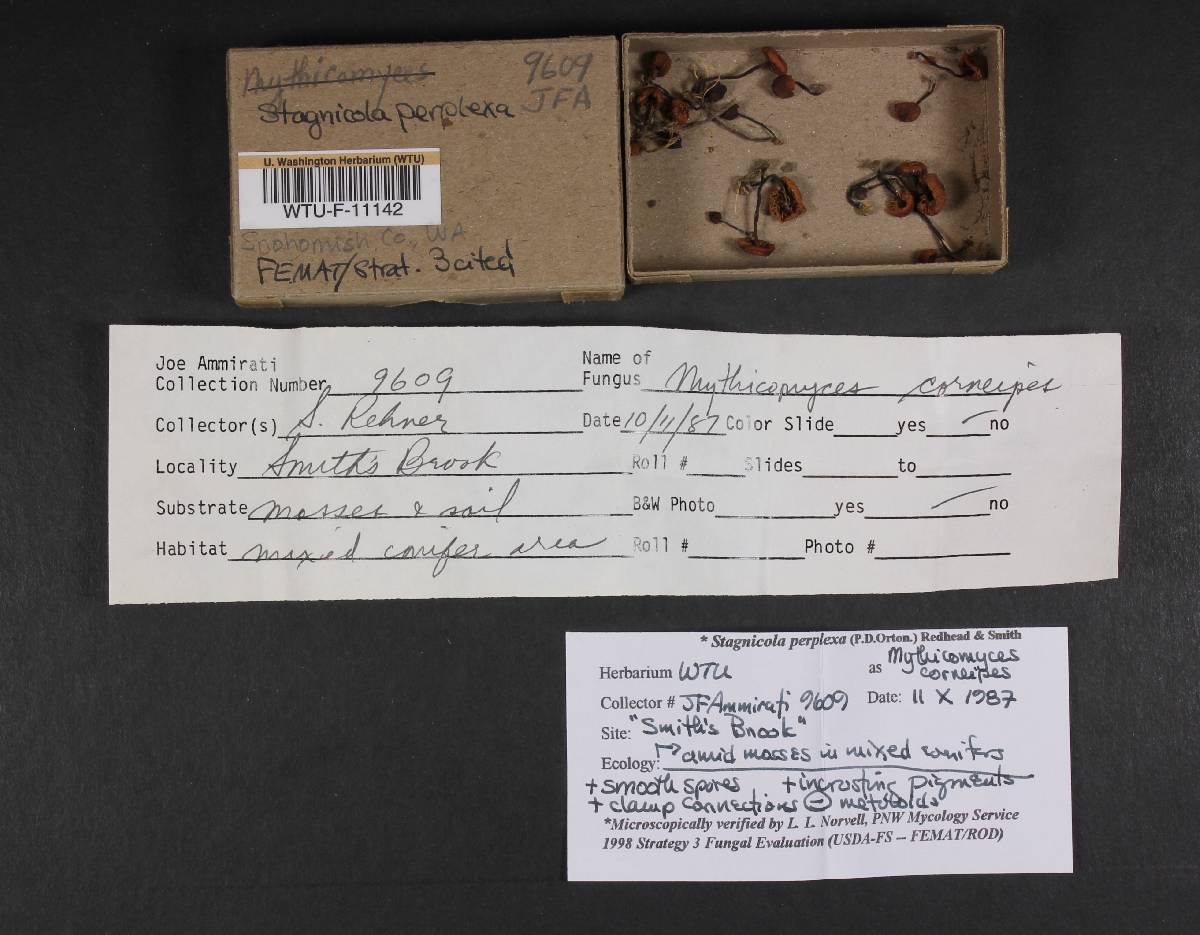 Mythicomyces 9609
Stagnicola perplexa JFA
U. Washington Herbarium (WTU)
WTU-F-11142
Snohomish Co., WA
FEMAT/Strat. 3 cited
Joe Ammirati
Collection Number 9609
Name of
Fungus Mythicomyces corneipes
Collector(s) S. Rehner Date 10/11/87 Color Slide yes no
Locality Smith's Brook Roll # Slides to
Substrate mosses & soil B&W Photo yes no
Habitat mixed conifer area Roll # Photo #
* Stagnicola perplexa (P.D.Orton.) Redhead & Smith
Herbarium WTU as Mythicomyces
corneipes
Collector # JFAmmirati 9609 Date: 11 X 1987
Site: "Smith's Brook"
Ecology: amid mosses in mixed conifers
+ smooth spores + incrusting pigments
+ clamp connections ⊖ metuloids
*Microscopically verified by L. L. Norvell, PNW Mycology Service
1998 Strategy 3 Fungal Evaluation (USDA-FS – FEMAT/ROD)